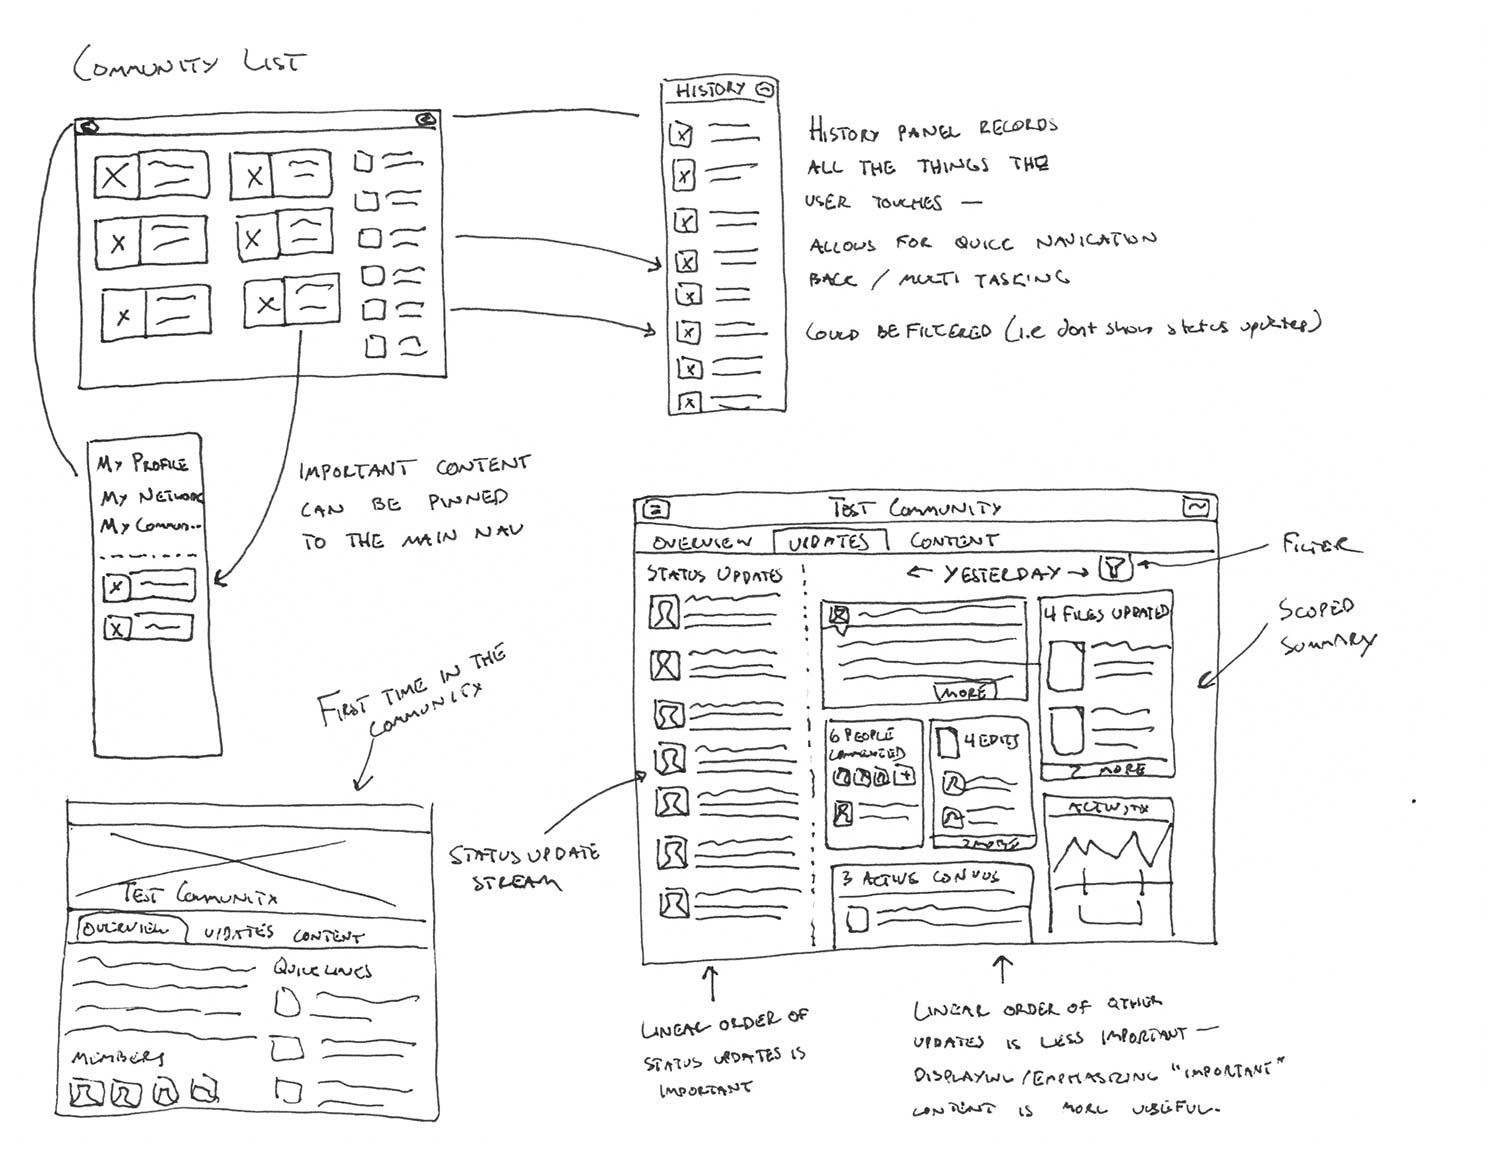 COMMUNITY LIST
HISTORY
HISTORY PANEL RECORDS
ALL THE THINGS THE
USER TOUCHES —
ALLOWS FOR QUICK NAVIGATION
BACK / MULTI TASKING
COULD BE FILTERED (i.e dont show status updates)
MY PROFILE
MY NETWORK
MY COMMUN...
IMPORTANT CONTENT
CAN BE PINNED
TO THE MAIN NAV
FIRST TIME IN THE
COMMUNITY
TEST COMMUNITY
OVERVIEW UPDATES CONTENT
QUICK LINKS
MEMBERS
TEST COMMUNITY
OVERVIEW UPDATES CONTENT
STATUS UPDATES
← YESTERDAY →
FILTER
SCOPED
SUMMARY
MORE
4 FILES UPDATED
2 MORE
6 PEOPLE
COMMENTED
4 EDITS
2 MORE
ACTIVITY
3 ACTIVE CONVOS
STATUS UPDATE
STREAM
LINEAR ORDER OF
STATUS UPDATES IS
IMPORTANT
LINEAR ORDER OF OTHER
UPDATES IS LESS IMPORTANT —
DISPLAYING/EMPHASIZING "IMPORTANT"
CONTENT IS MORE USEFUL.